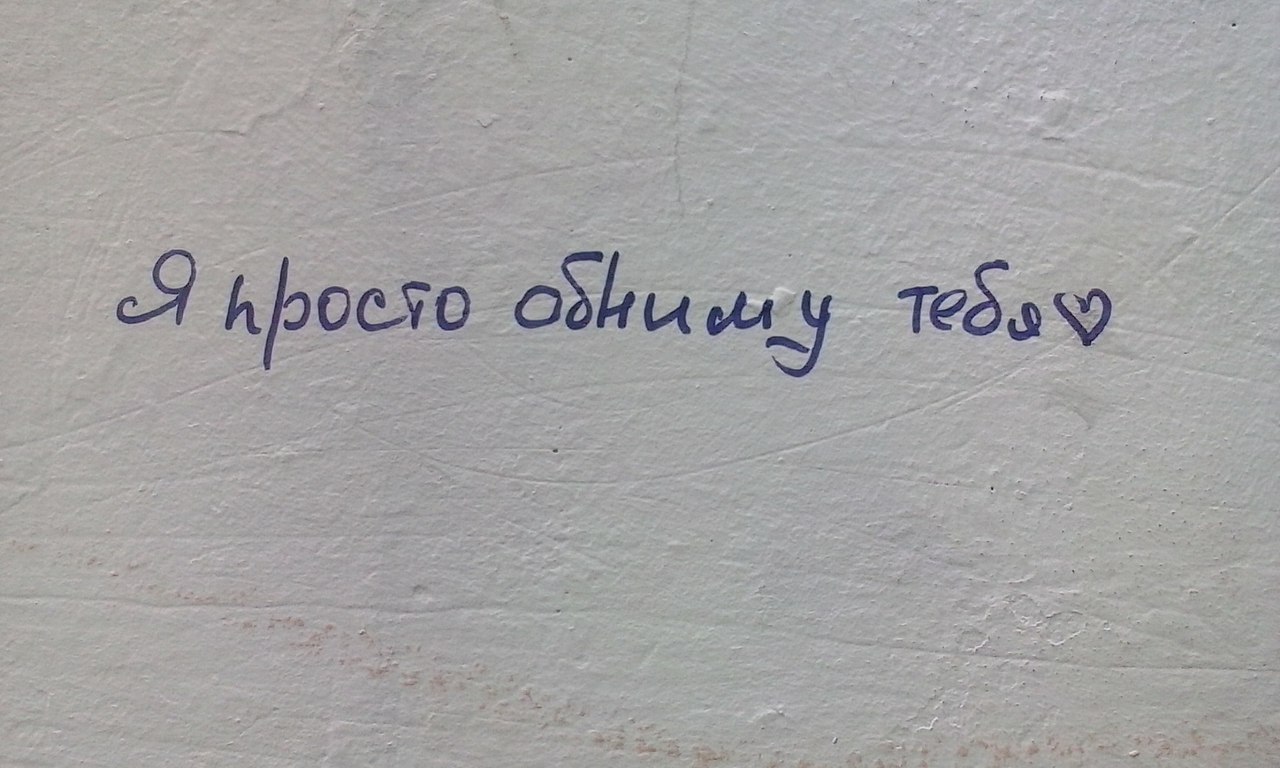 Я просто обниму тебя♡